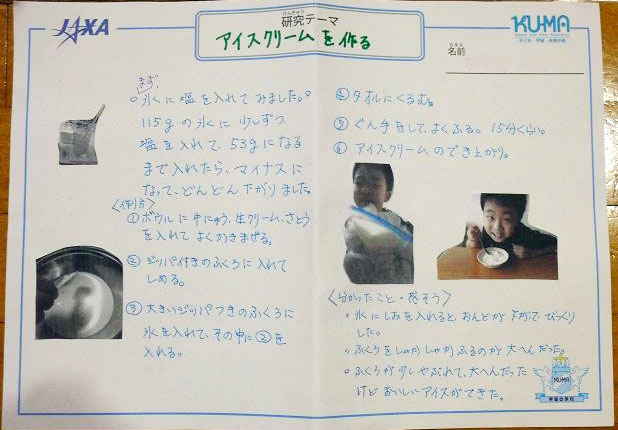 JAXA
けんきゅう
研究テーマ
アイスクリームを作る
KUMA
なまえ
名前
まず、
氷に塩を入れてみました。
115gの氷に少しずつ
塩を入れて、53gになる
まで入れたら、マイナスに
なって、どんどん下がりました。
〈作り方〉
①ボウルに牛にゅう、生クリーム、さとう
を入れてよくかきまぜる。
②ジッパ付きのふくろに入れて
しめる。
③大きいジッパつきのふくろに
氷を入れて、その中に②を
入れる。
④タオルにくるむ。
⑤ぐん手をして、よくふる。15分くらい。
⑥アイスクリームのでき上がり。
〈分かったこと・感そう〉
。氷にしおを入れると、おんどが下がって びっくり
した。
。ふくろをしゃかしゃかふるのが大へんだった。
。ふくろが少しやぶれて、大へんだった
けど おいしいアイスができた。
KUMA
宇宙の学校